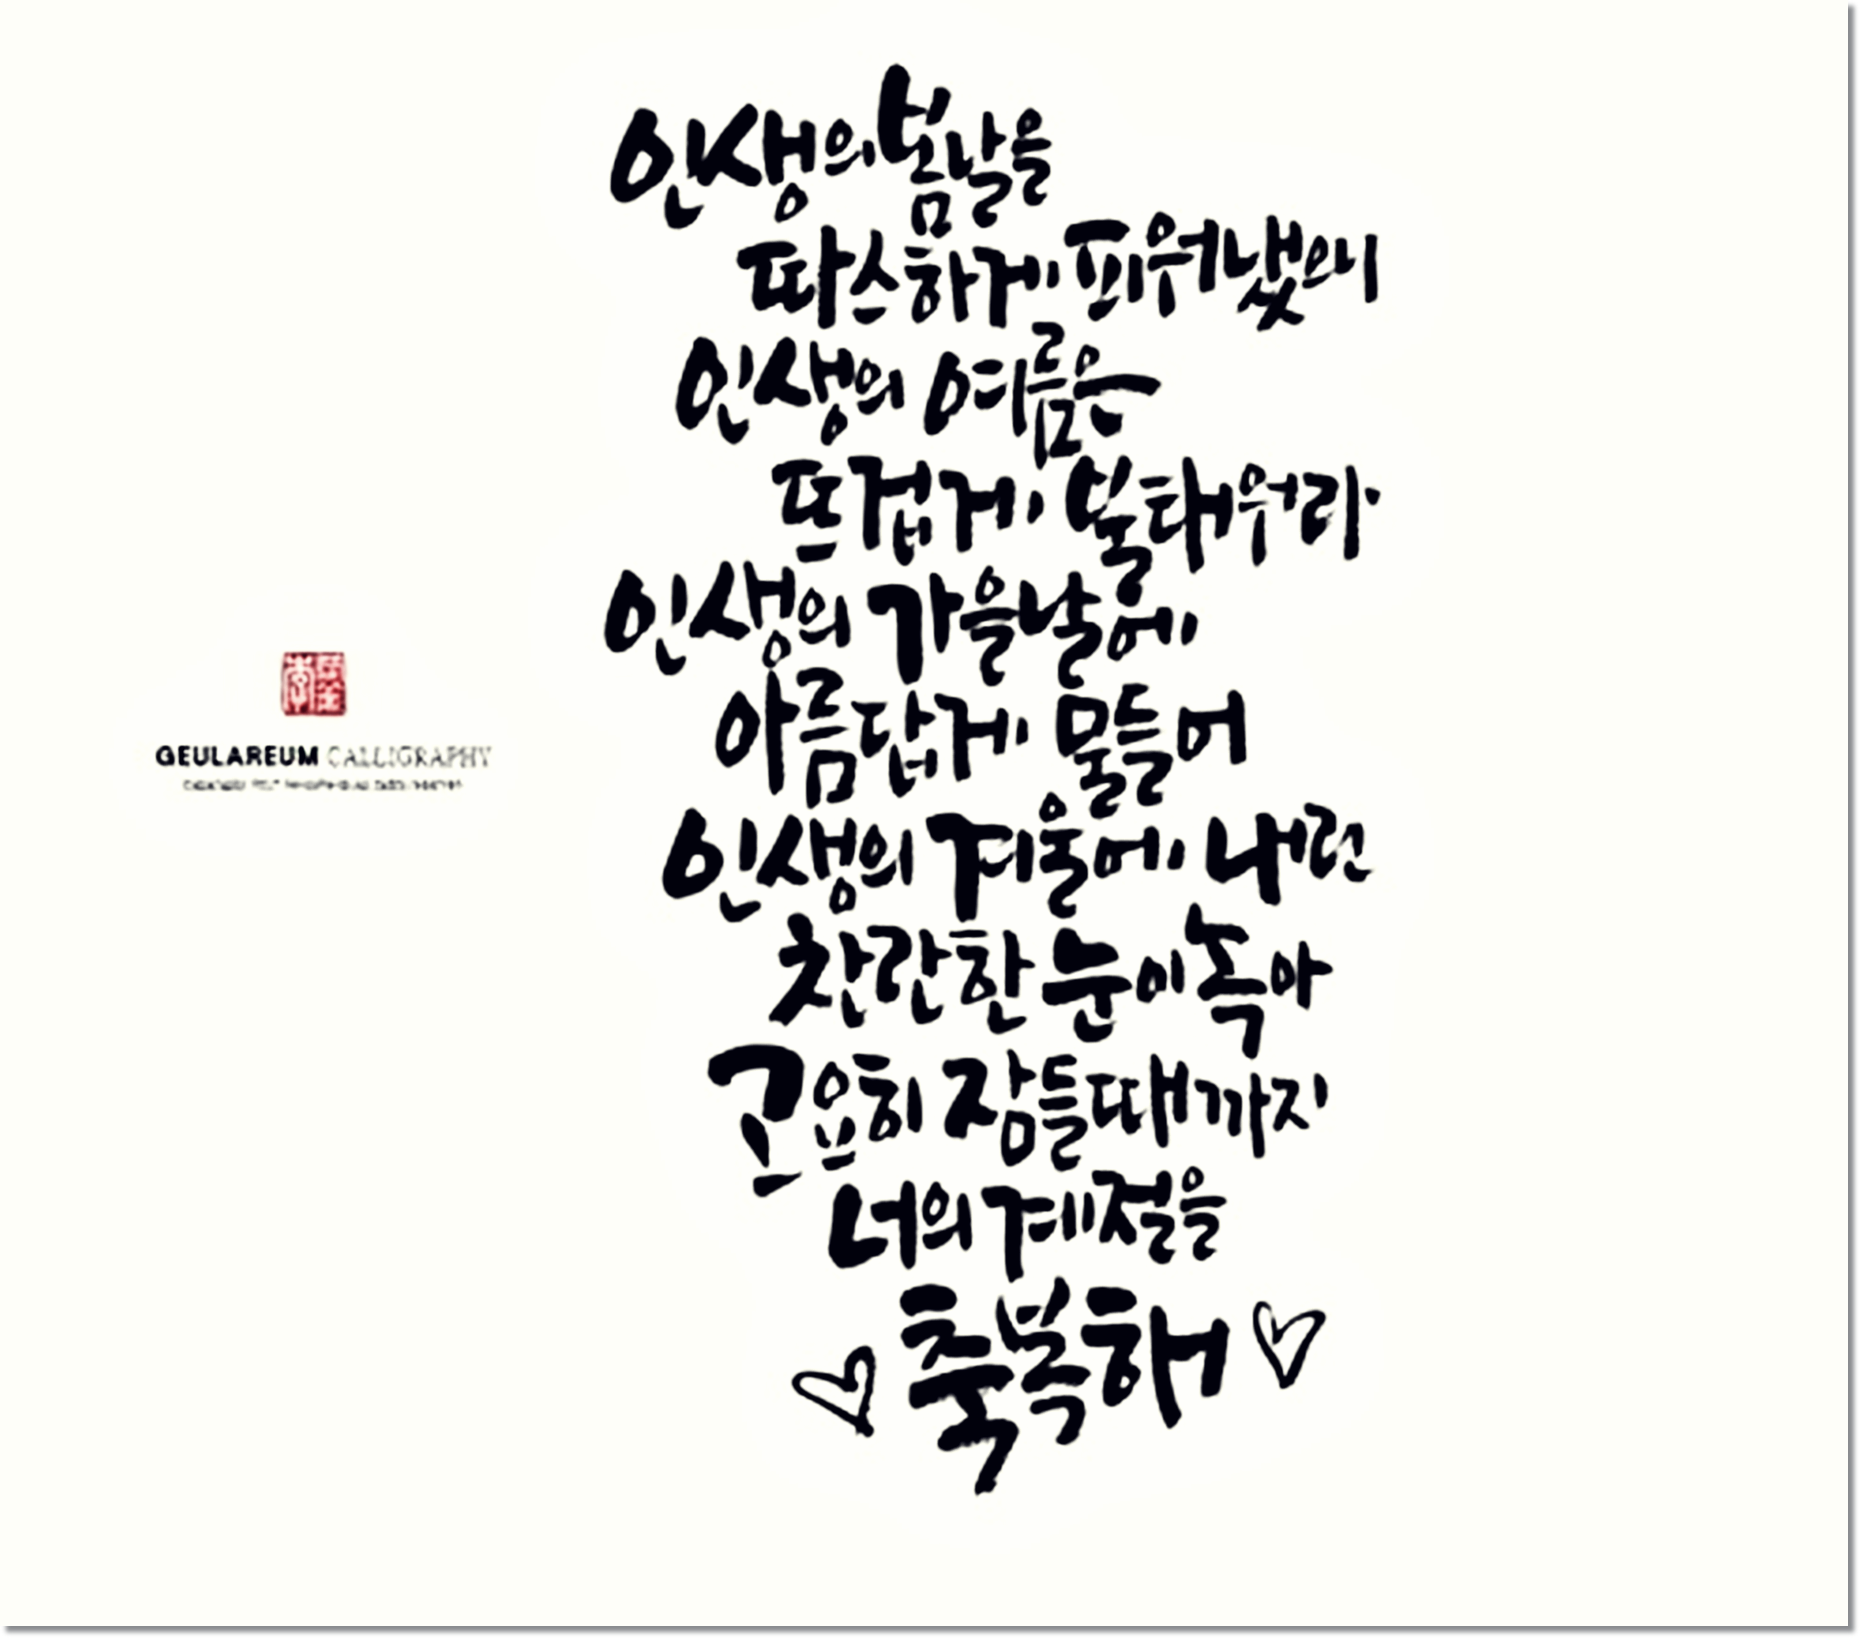 인생의 봄날을
따스하게 피워냈으니
인생의 여름은
뜨겁게 불태워라
인생의 가을날에
아름답게 물들어
인생의 겨울에 내린
찬란한 눈이 녹아
고요히 잠들 때까지
너의 계절을
축복해
GEULAREUM CALLIGRAPHY